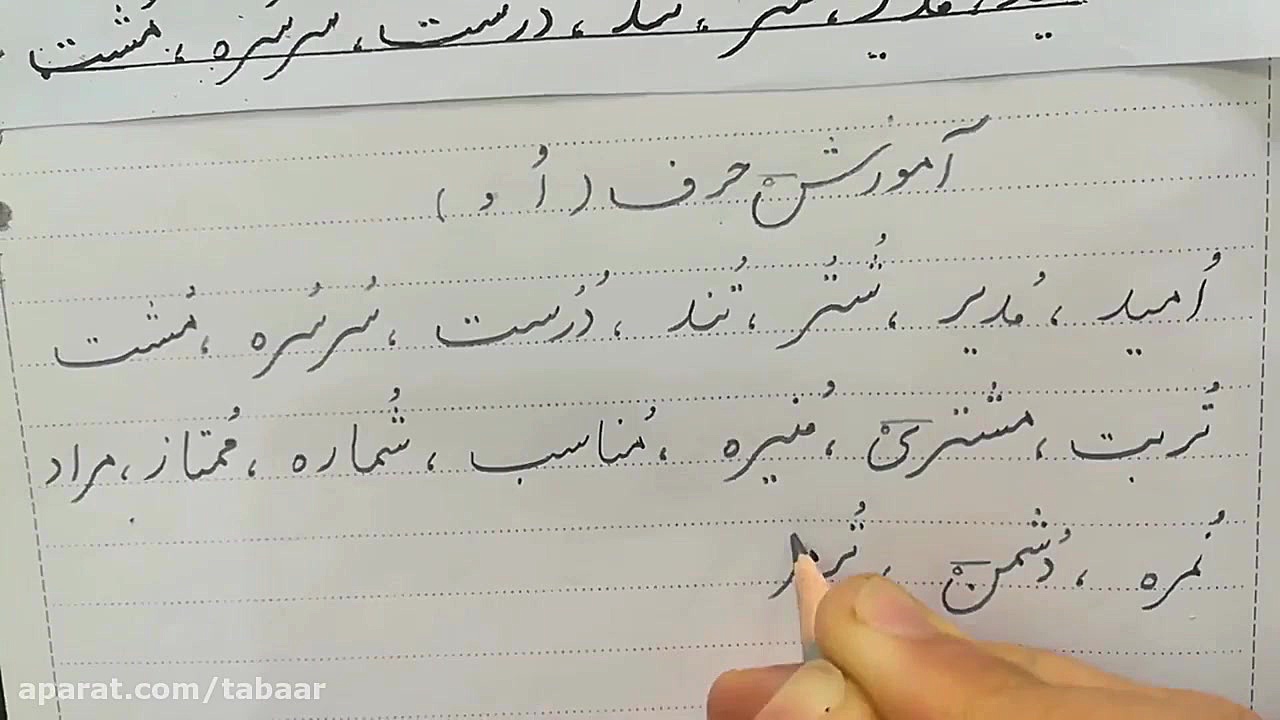 تند، درست، سرسره، مُشت
آموزش حرف ( اُ و )
اُمید ، مُدیر ، شُتر ، تُند ، دُرست ، سُرسُره ، مُشت
تُربت ، مشتری ، مُنیره ، مُناسب ، شُماره ، مُمتاز ، مراد
نُمره ، دُشمن ،
aparat.com/tabaar